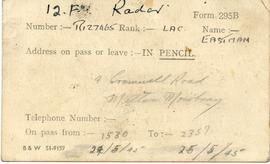 12. F. Radar
Form 295B
Number :- R127465 Rank :- LAC Name :-
EASTMAN
Address on pass or leave :- IN PENCIL.
9 Cromwell Road
Melton Mowbray
Telephone Number :-
On pass from :- 1530 To :- 2359
B & W 51-9159 24/5/45 25/5/45